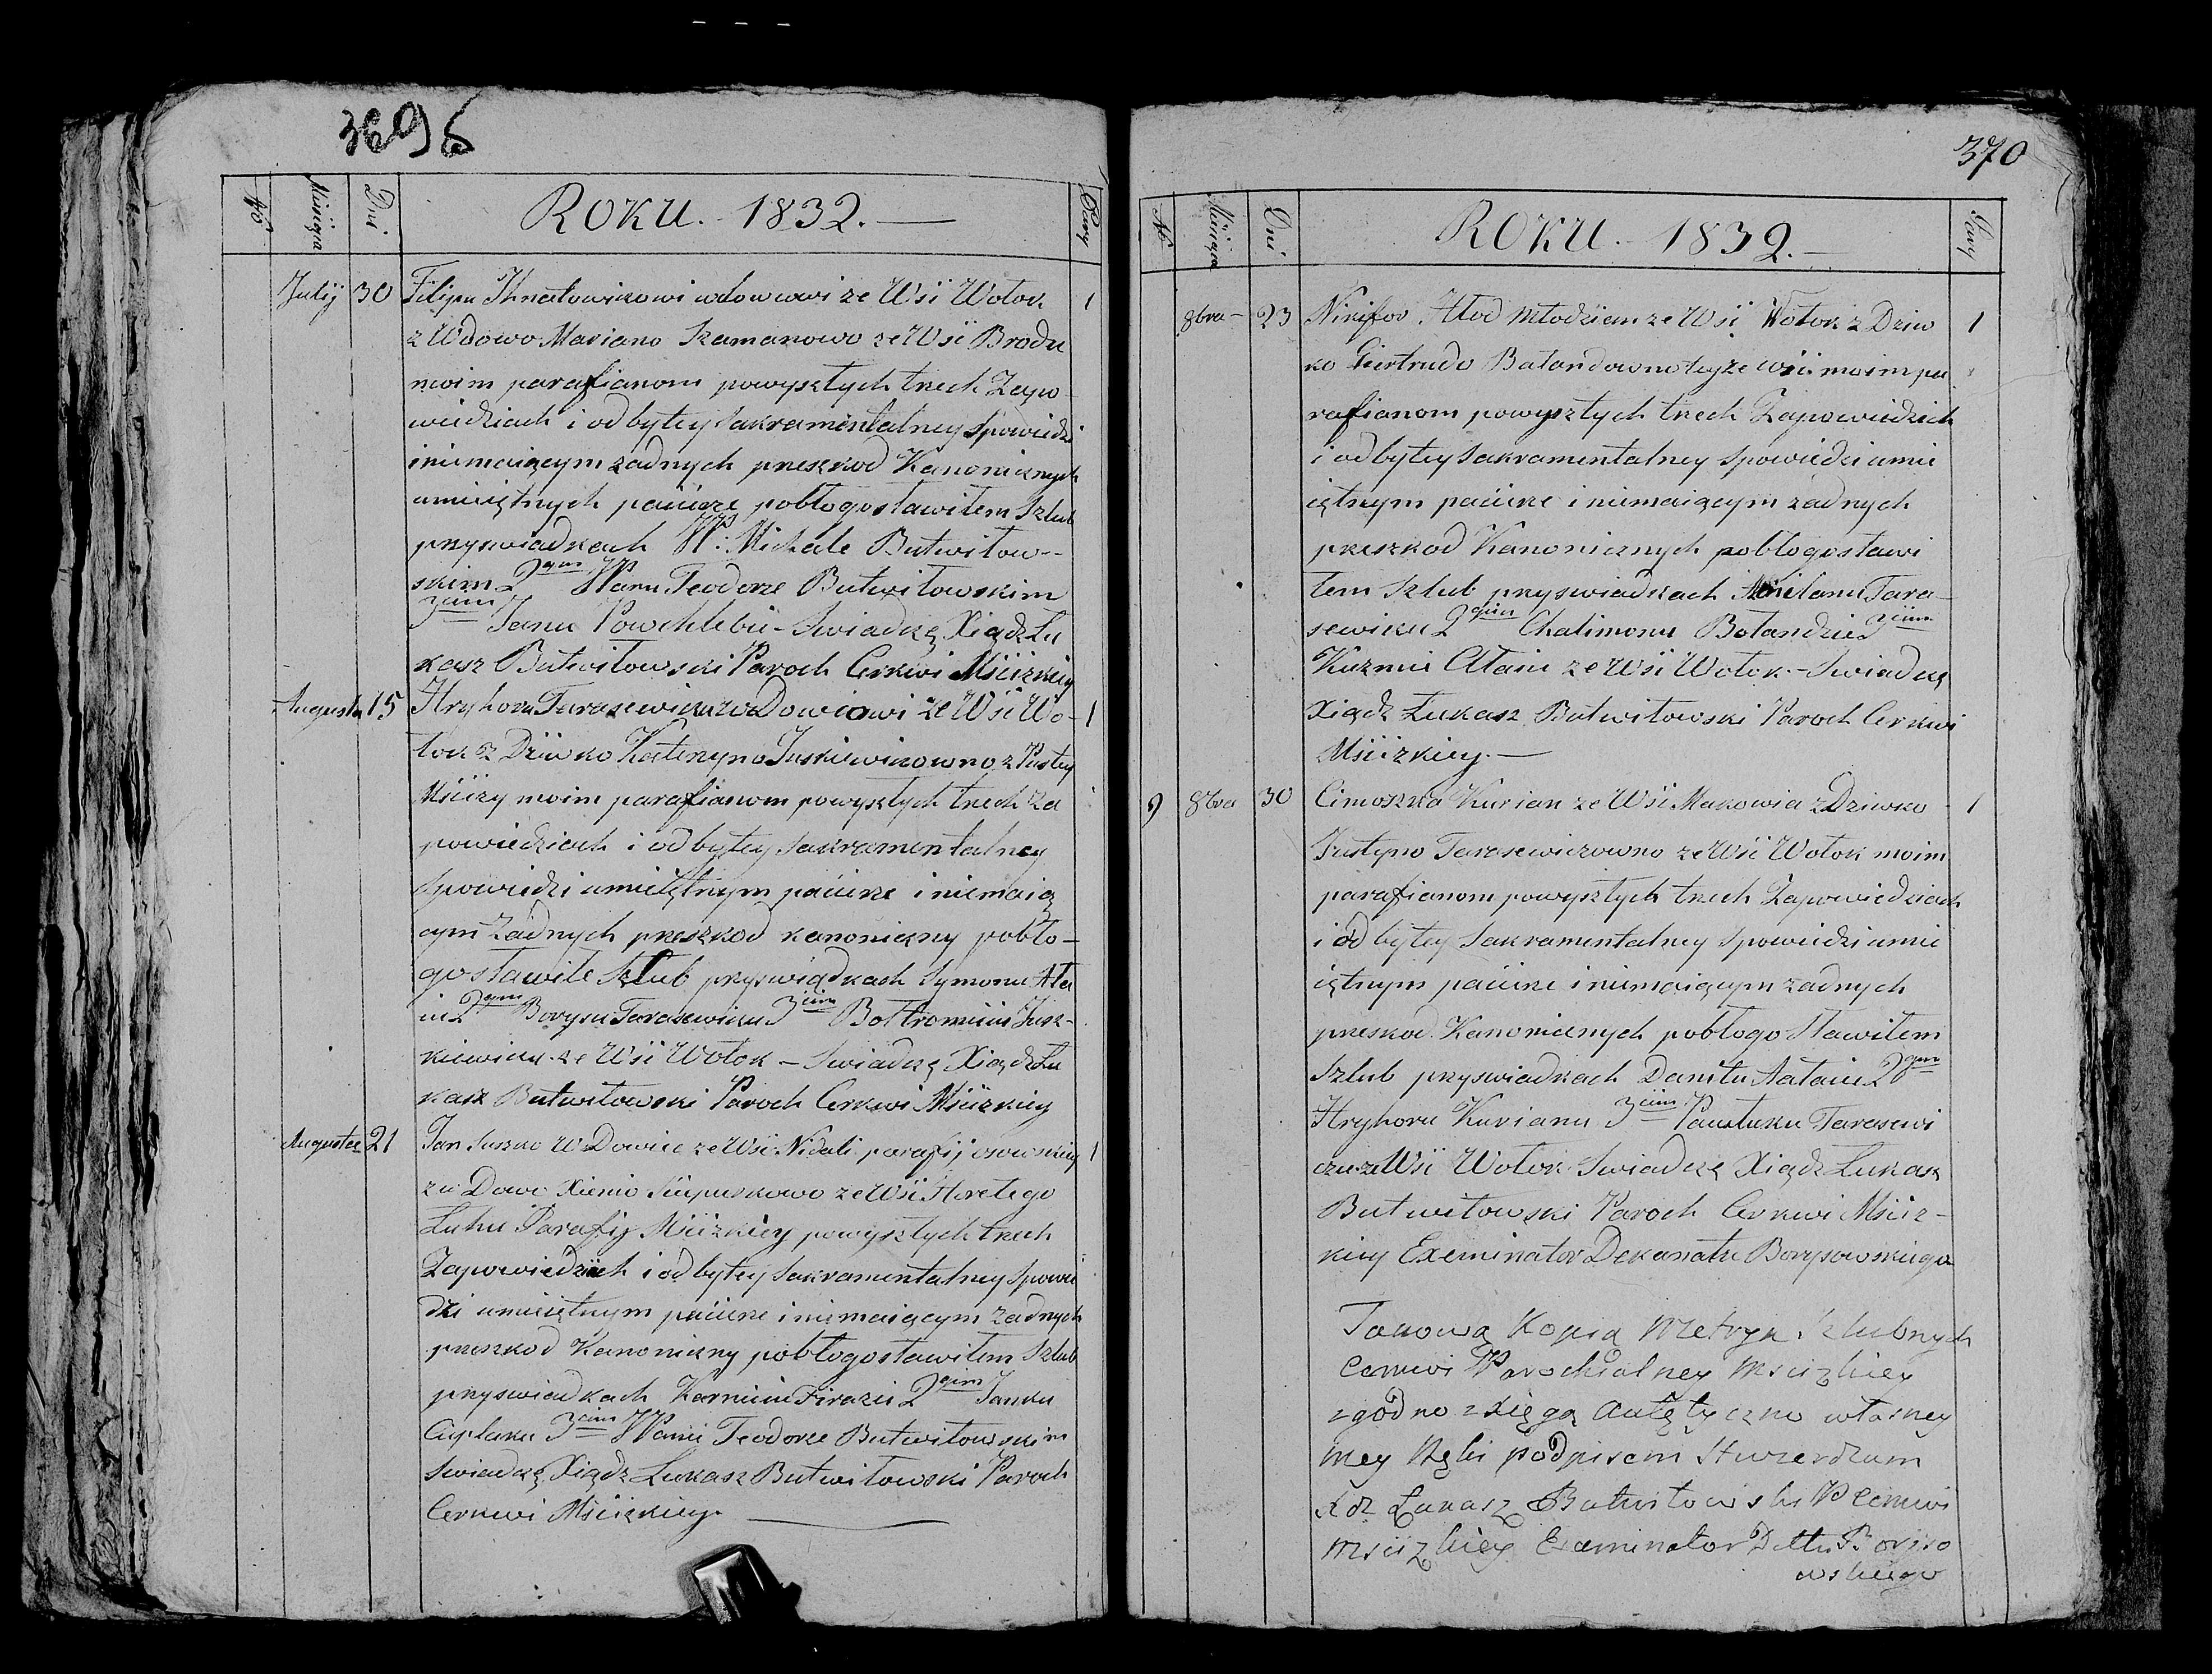 3696
No Miesiąca Dni ROKU. 1832. Pary
Julij 30 Filipu Ihnatowiczowi wdowcowi ze Wsi Wołok 1
z Wdowo Mariano Szamanowo ze Wsi Brodu
moim parafianom powyszłych trzech Zapo
wiedziach i odbytey Sakramentalney Spowiedzi
i niemaiącym żadnych preszkod Kanonicznych
umieiętnych pacierze pobłogosławiłem Szlub
przyswiadkach W: Michale Butwiłow-
skim 2gim WPanu Teodorze Butwiłowskim
3cim Janu Powchlebie - Swiadczę Xiądz Łu
kasz Butwiłowski Paroch Cerkwi Mścizkiey
Augusta 15 Hryhoru Tarasewiczu wDowcowi ze Wsi Wo- 1
łok z Dziwko Kateryno Juskiewiczowno z Pustey
Mściży moim parafianom powyszłych trzech Za
powiedziach i odbytey Sakramentalney
Spowiedzi umieiętnym pacierze i niemaią
cym Żadnych preszkod kanoniczny pobło-
gosławiłe Szlub przyswiadkach Symonu Ała
iu 2gim Borysu Tarasewiczu 3cim Bołtromieiu Jusz-
kiewiczu ze Wsi Wołok - Swiadczę Xiądz Łu
kasz Butwiłowski Paroch Cerkwi Mścizkiey
Augusta 21 Jan Suszko WDowiec ze Wsi Nidali parafij osowskiey 1
zu Dowo Xienio Sciepuskowo ze Wsi Horełego
Łuhu Parafij Mścizkiey powyszłych trzech
Zapowiedziach i odbytey Sakramentalney Spowie
dzi umieiętnym pacierze i niemaiącym żadnych
preszkod Kanoniczny pobłogosławiłem Szlub
przyswiadkach Karnieiu Firazie 2gim Janku
Cieplaku 3cim WPanie Teodorze Butwiłowskim
Swiadczę Xiądz Łukasz Butwiłowski Paroch
Cerkwi Mścizkiey.
370
No Miesiąca Dni ROKU. 1832. Pary
8bra 23 Nikifor Hłod Młodzian ze Wsi Wołok z Dziw 1
ko Giertrudo Bałandowno teyże wsi moim pa
rafianom powyszłych trzech Zapowiedziach
i odbytey Sakramentalney Spowiedzi umie
iętnym pacierze i niemaiącym żadnych
preszkod Kanonicznych pobłogosławi
łem Szlub przyswiadkach Tara-
sewiczu 2gim Chalimonu Bołandzie 3cim
Kuzmie Ałaiu ze Wsi Wołok - Swiadczę
Xiądz Łukasz Butwiłowski Paroch Cerkwi
Mścizkiey.
9 8bra 30 Cimoszka Kurian ze Wsi Makowia z Dziwko 1
Justyno Tarasewiczowno ze Wsi Wołok moim
parafianom powyszłych trzech Zapowiedziach
i odbytey Sakramentalney Spowiedzi umie
iętnym pacierze i niemaiącym żadnych
preszkod Kanonicznych pobłogosławiłem
Szlub przyswiadkach Daniłu Aałaiu 2gim
Hryhoru Kurianu 3cim Pauluku Tarasewi
czu ze Wsi Wołok Swiadczę Xiądz Łukasz
Butwiłowski Paroch Cerkwi Mściz-
kiey Exeminator Dekanatu Borysowskiego
Takową Kopią Metryk Szlubnych
Cerkwi Parochialney Mscizkiey
zgodno z xięgą Autętyczno własney
mey Ręki podpisem Stwierdzam
Xdz Łukasz Butwiłowski P Cerkwi
Mscizkiey Exeminator Dttu Boriso
wskiego